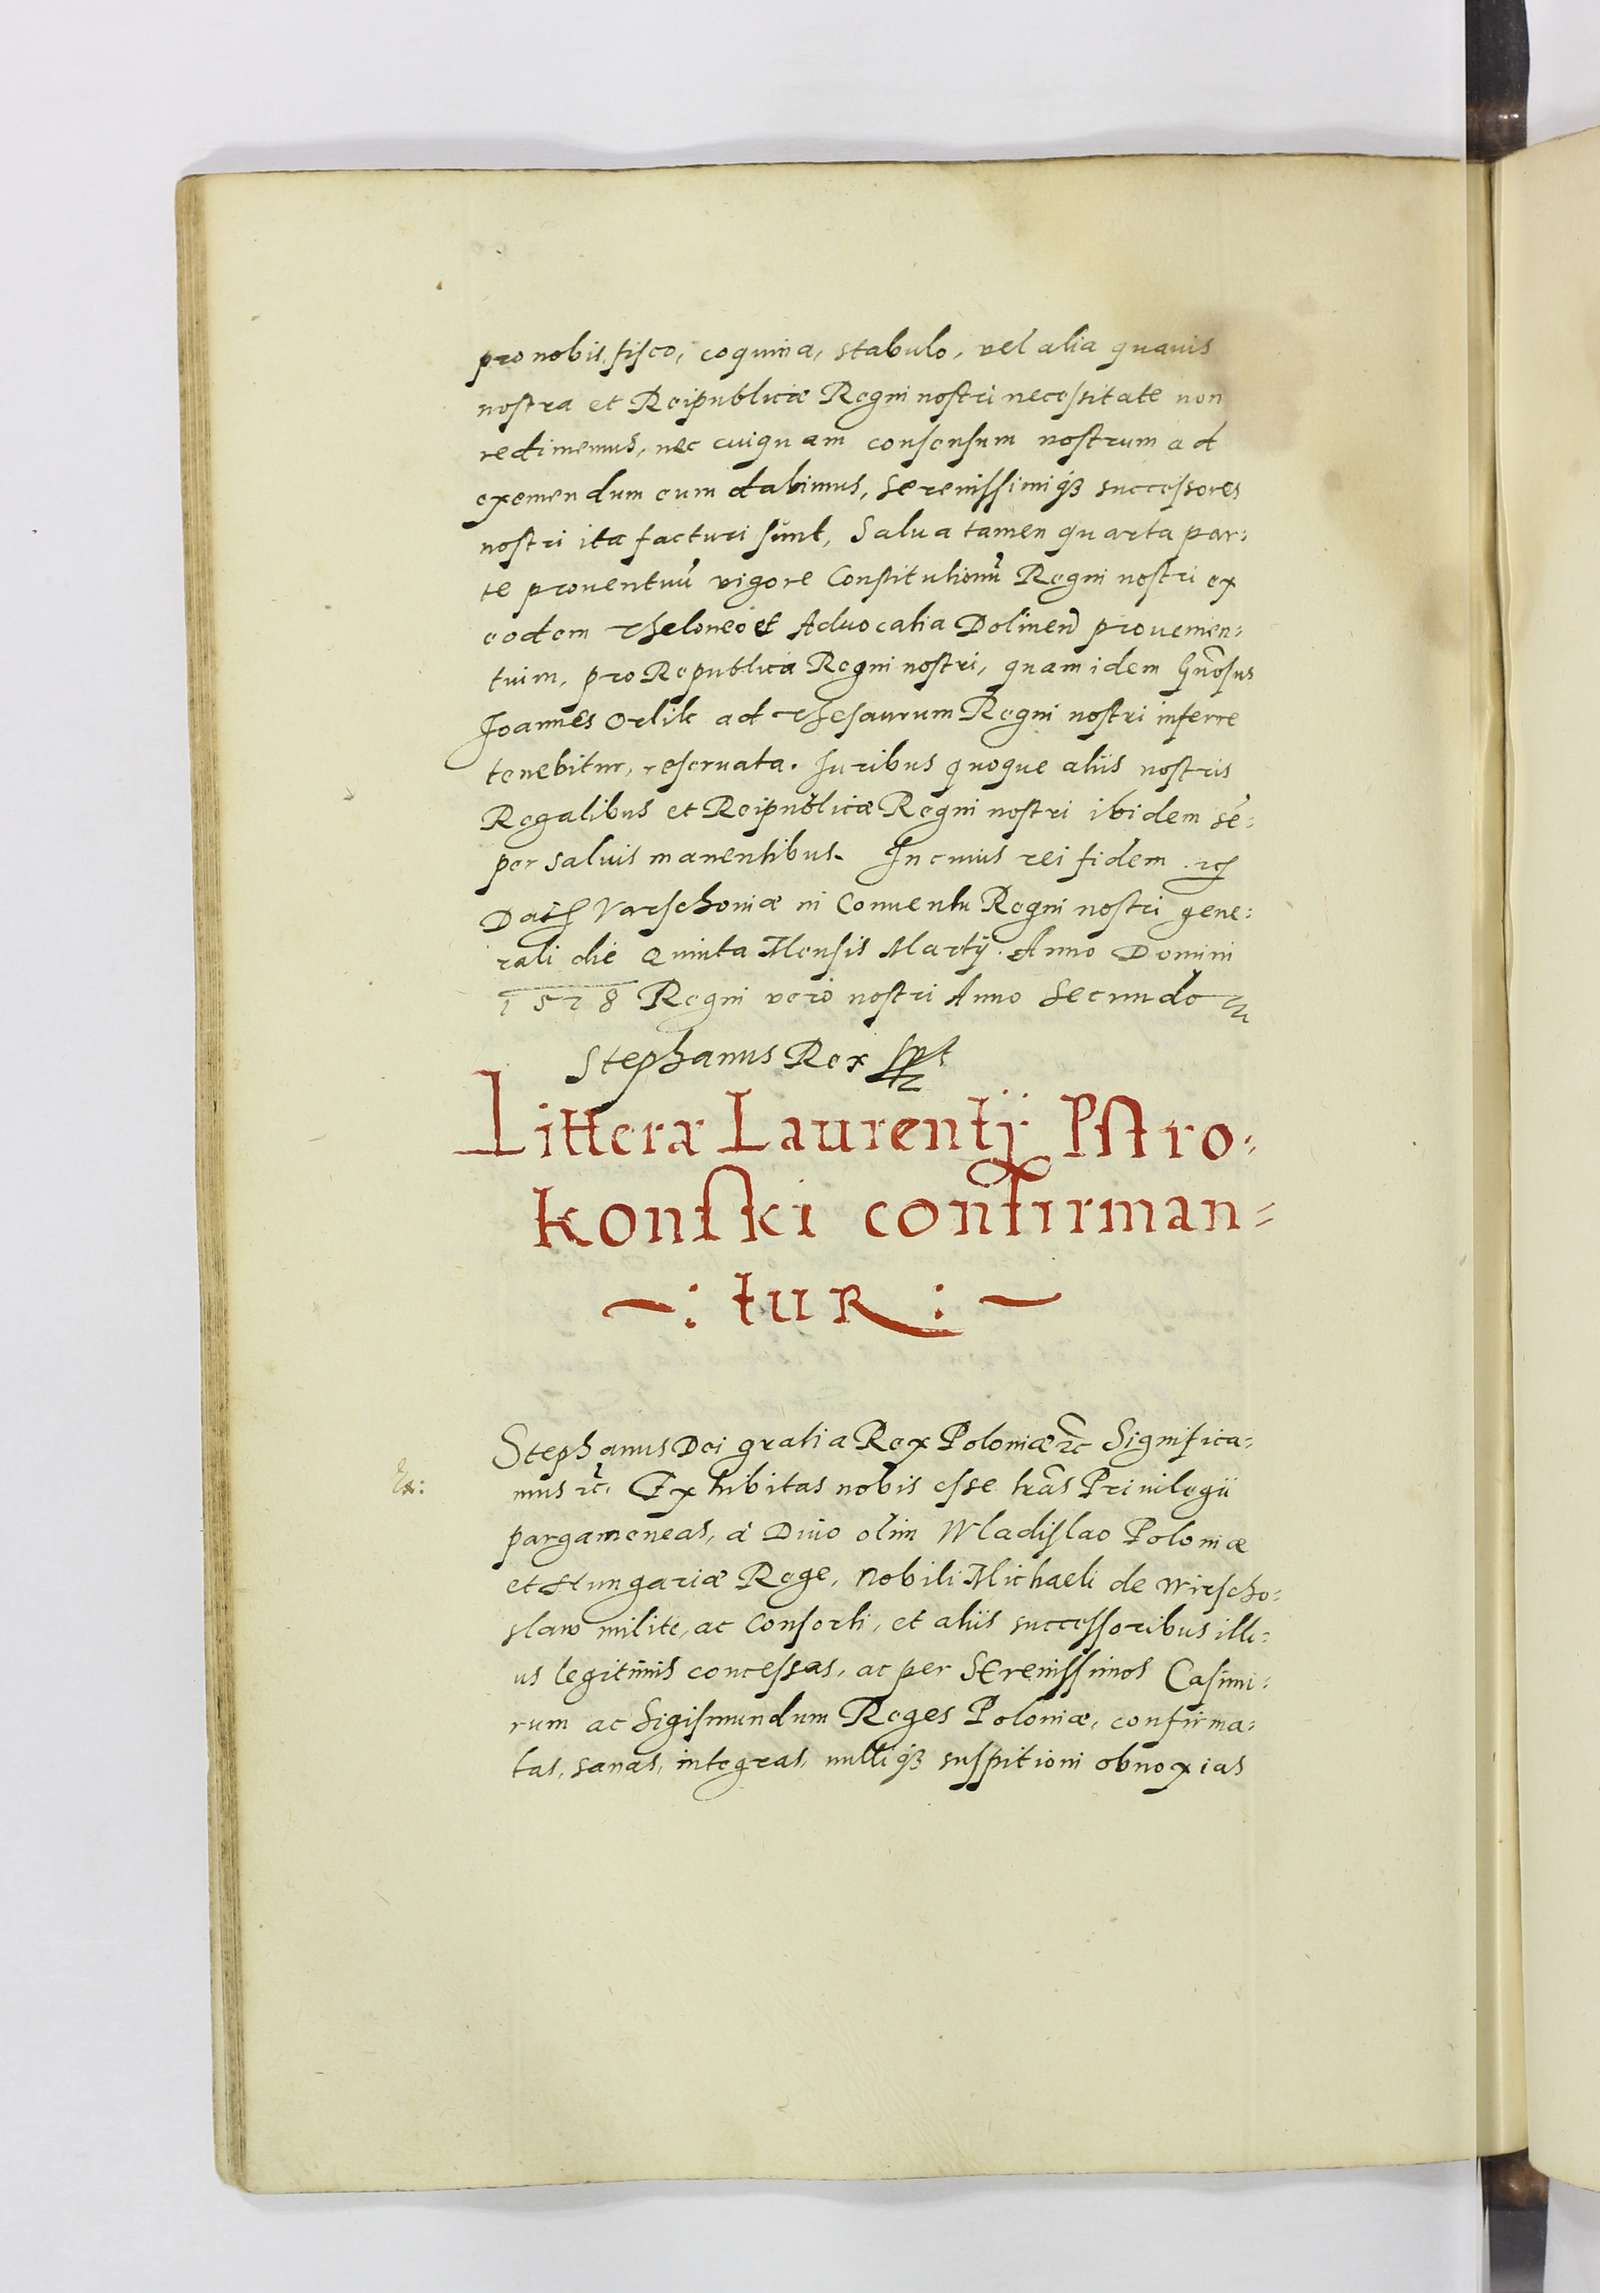 pro nobis, fisco, coquina, stabulo, vel alia quauis
nostra et Reipublicæ Regni nostri necessitate non
redimemus, nec cuiquam consensum nostrum ad
exemendum eum dabimus, Serenissimiq3 successores
nostri ita facturi sunt, Salua tamen quarta par:
te prouentuũ vigore Constitutionũ Regni nostri ex
eodem Theloneo et Aduocatia Dolinen̄ prouenien:
tium, pro Republica Regni nostri, quam idem Gñosus
Joannes Orlik ad Thesaurum Regni nostri inferre
tenebitur, reseruata. Juribus quoque aliis nostris
Regalibus et Reipublicæ Regni nostri ibidem sẽ:
per saluis manentibus. In cuius rei fidem
Varschouiæ in Conuentu Regni nostri gene:
rali die Quinta Mensis Martij Anno Domini
1578 Regni vero nostri Anno Secundo
Stephanus Rex
Litteræ Laurentij Pstro:
konski confirman:
~: tur :~
Stephanus Dei gratia Rex Poloniæ ꝛc Significa:
mus ꝛc. Exhibitas nobis esse lr̃as Priuilegii
pargameneas, à Diuo olim Wladislao Poloniæ
et Hungariæ Rege, Nobili Michaeli de Wirscho:
slaw milite, ac Consorti, et aliis successoribus illi:
us legitimis concessas, ac per Serenissimos Casimi:
rum ac Sigismundum Reges Poloniæ, confirma:
tas, sanas, integras, nulliq3 suspitioni obnoxias